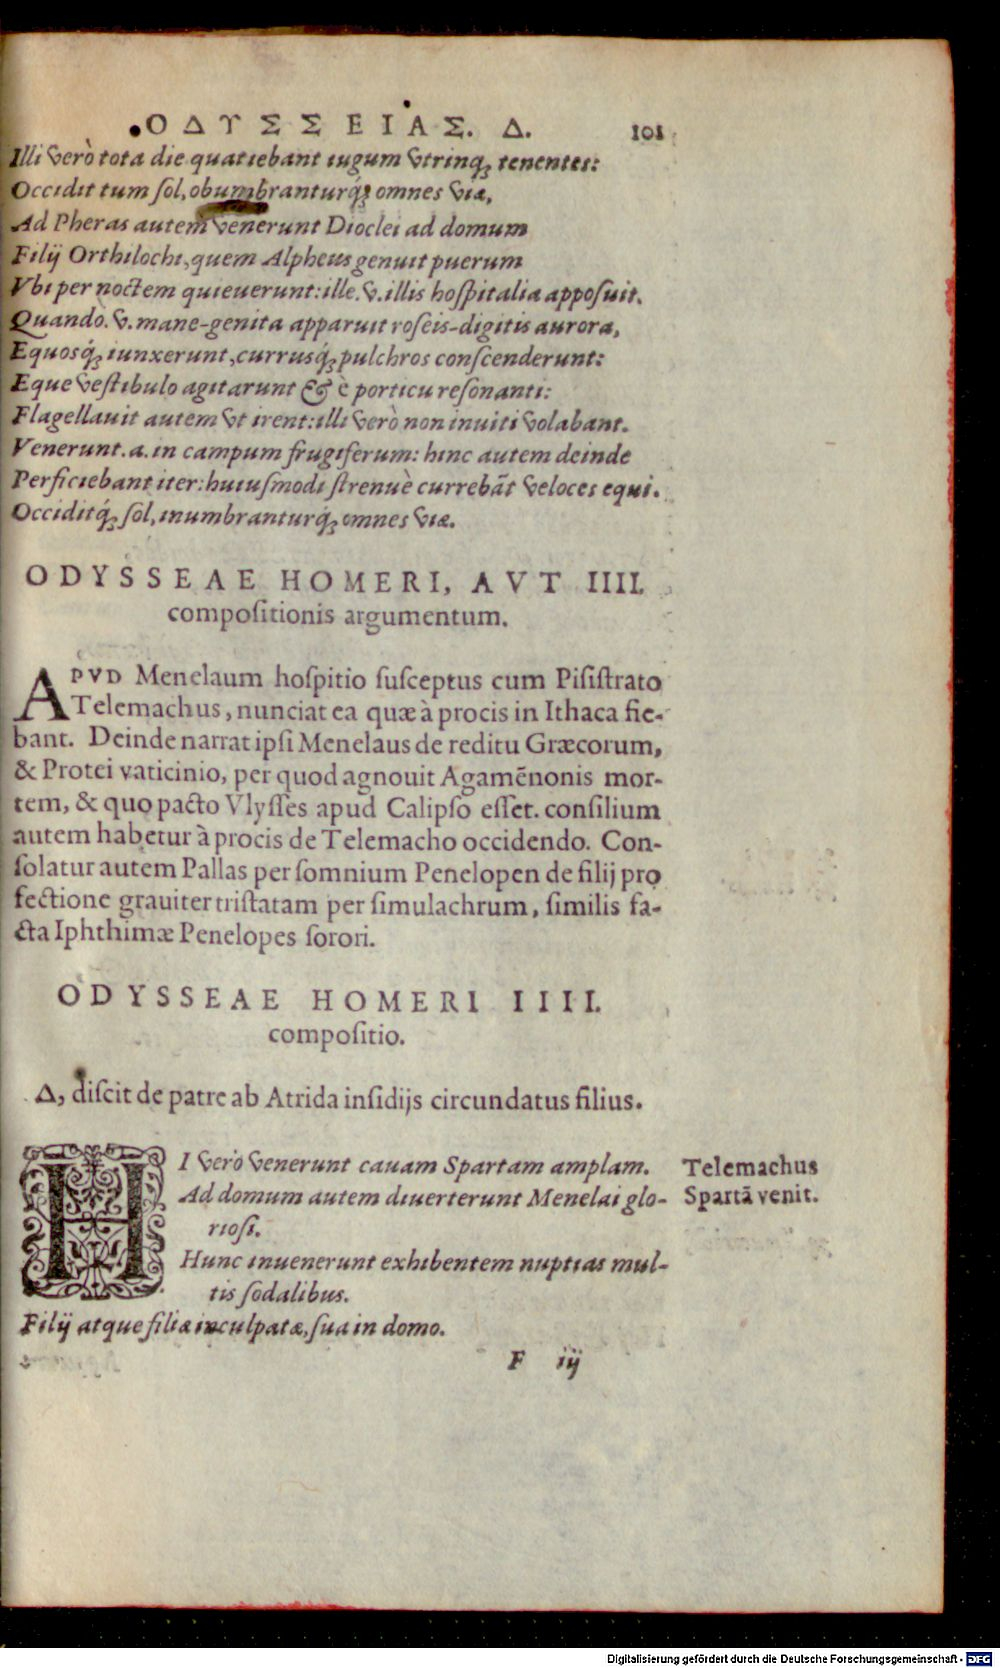 ΟΔΥΣΣΕΙΑΣ. Δ. 101
Illi verò tota die quatiebant iugum vtrinq́ꝫ tenentes:
Occidit tum ſol, obumbranturq́ꝫ omnes viæ,
Ad Pheras autem venerunt Dioclei ad domum
Filij Orthilochi, quem Alpheus genuit puerum
Vbi per noctem quieuerunt: ille. v. illis hoſpitalia appoſuit.
Quando. v. mane-genita apparuit roſeis-digitis aurora,
Equosq́ꝫ iunxerunt, currusq́ꝫ pulchros conſcenderunt:
Eque veſtibulo agitarunt & è porticu reſonanti:
Flagellauit autem vt irent: illi verò non inuiti volabant.
Venerunt. a. in campum frugiferum: hinc autem deinde
Perficiebant iter: huiuſmodi ſtrenuè currebāt veloces equi.
Occiditq́ꝫ ſol, inumbranturq́ꝫ omnes viæ.
ODYSSEAE HOMERI, AVT IIII.
compoſitionis argumentum.
APVD Menelaum hoſpitio ſuſceptus cum Piſiſtrato
Telemachus, nunciat ea quæ à procis in Ithaca fie-
bant. Deinde narrat ipſi Menelaus de reditu Græcorum,
& Protei vaticinio, per quod agnouit Agamēnonis mor-
tem, & quo pacto Vlyſſes apud Calipſo eſſet. conſilium
autem habetur à procis de Telemacho occidendo. Con-
ſolatur autem Pallas per ſomnium Penelopen de filij pro
fectione grauiter triſtatam per ſimulachrum, ſimilis fa-
cta Iphthimæ Penelopes ſorori.
ODYSSEAE HOMERI IIII.
compoſitio.
Δ, diſcit de patre ab Atrida inſidijs circundatus filius.
HI verò venerunt cauam Spartam amplam.
Ad domum autem diuerterunt Menelai glo-
rioſi.
Hunc inuenerunt exhibentem nuptias mul-
tis ſodalibus.
Filij atque filiæ inculpatæ, ſua in domo.
Telemachus
Spartā venit.
F iij
Digitalisierung gefördert durch die Deutsche Forschungsgemeinschaft - DFG